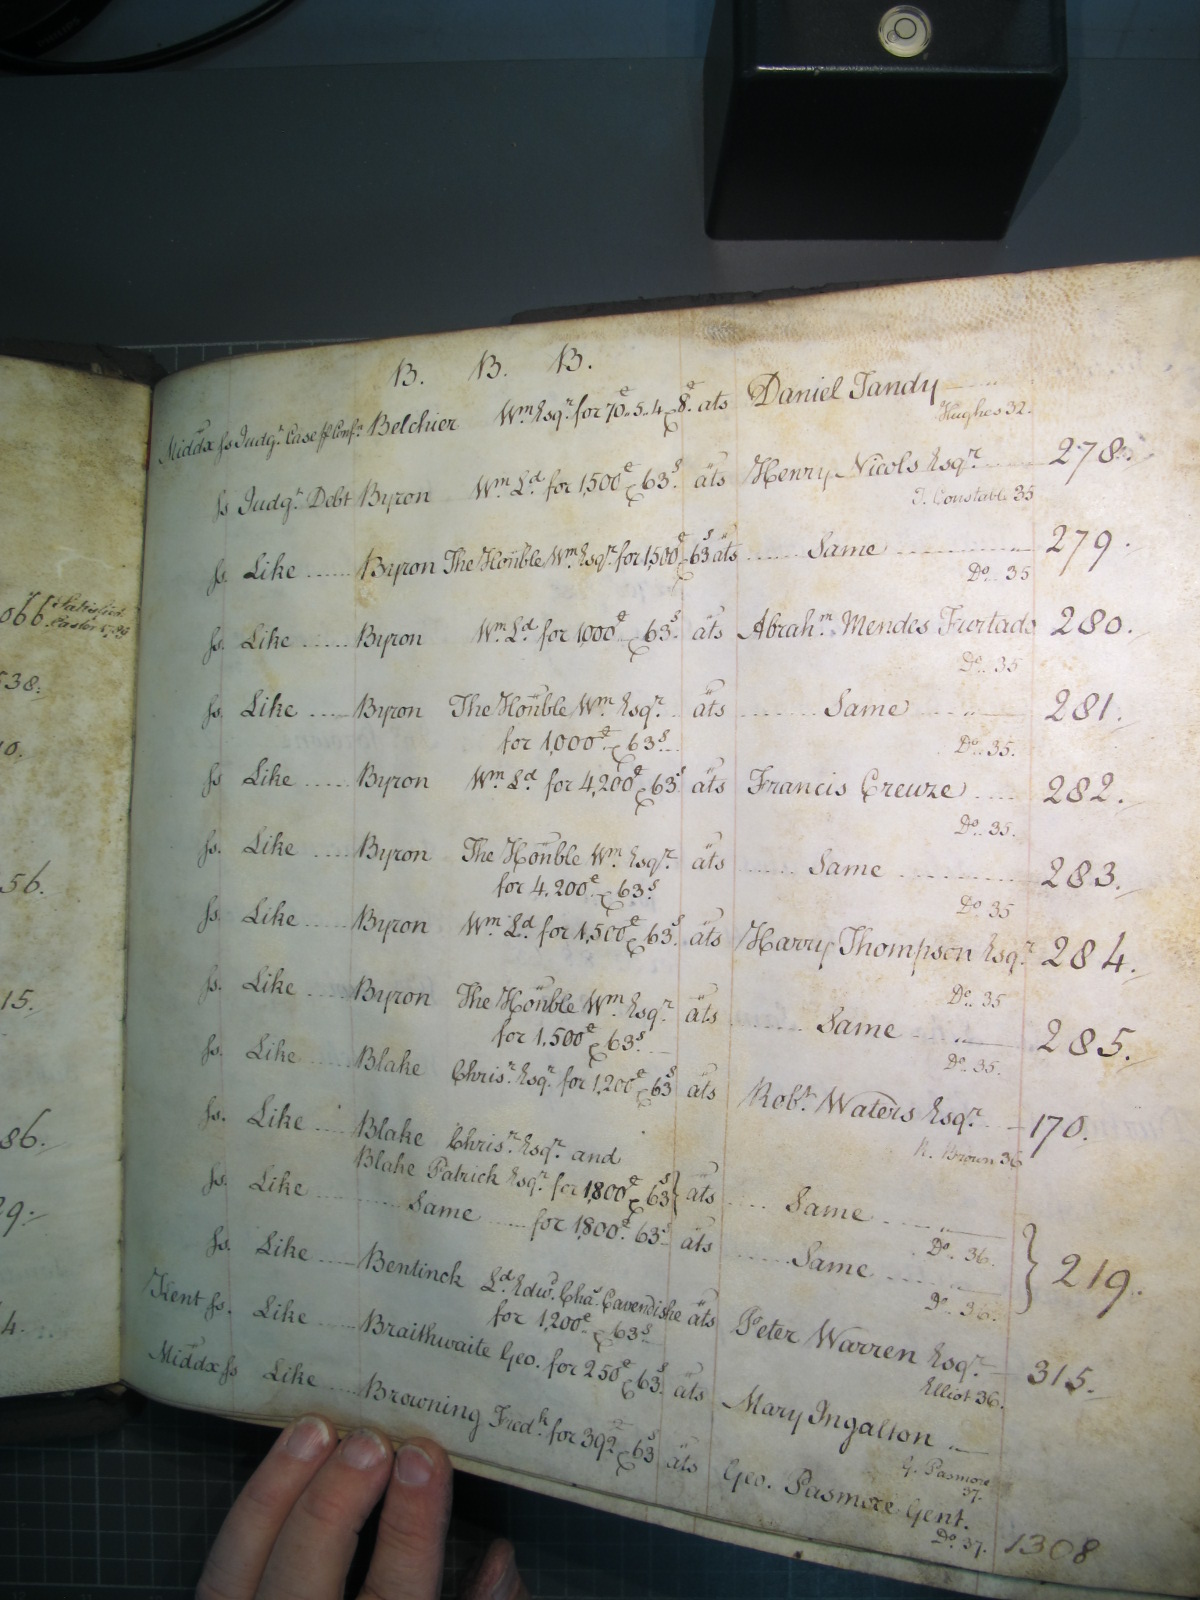 B. B. B.
Middx ss Judgt. Case ff Confn. Belchier Wm Esqr. for 70£.. 5.. 4 & 8d. ats Daniel Tandy
Hughes 32.
ss Judgt. Debt Byron Wm Ld. for 1,500£ & 63s. ats Henry Nicols Esqr. 278.
T. Constable 35
ss. Like ...... Byron The Honble Wm Esqr. for 1,500£ & 63s ats ...... Same ............ 279.
Do.. 35
ss. Like ..... Byron Wm Ld for 1000£ & 63s. ats Abrahm. Mendes Furtado 280.
Do. 35
ss. Like ..... Byron The Honble Wm. Esqr. ats ....... Same ..... 281.
for 1,000£ & 63s..
Do.. 35.
ss. Like ..... Byron Wm. Ld. for 4,200£ & 63s ats Francis Creuze .... 282.
Do. 35.
ss. Like .... Byron The Honble Wm. Esqr. ats ...... Same .......... 283.
for 4,200£ & 63s.
Do. 35
ss. Like ..... Byron Wm. Ld. for 1,500£ & 63s. ats Harry Thompson Esqr. 284.
Do. 35
ss. Like ..... Byron The Honble Wm. Esqr. ats ....... Same ...... 285.
for 1,500£ & 63s.
Do. 35.
ss. Like ..... Blake Chrisr. Esqr. for 1,200£ & 63s ats Robt. Waters Esqr. 170.
R. Brown 36
ss. Like ..... Blake Chrisr. Esqr. and
Blake Patrick Esqr. for 1,800£ & 63s } ats ..... Same ......
Do. 36.
ss. Like ........ Same ..... for 1,800£. 63s. ats ...... Same ....... } 219.
Do. 36.
ss. Like .... Bentinck Ld. Edwd. Chas. Cavendishe ats Peter Warren Esqr. 315.
for 1,200£ & 63s
Elliot 36.
Kent ss. Like ..... Braithwaite Geo. for 250£ & 63s. ats Mary Ingalton
G. Pasmore
37.
Middx ss Like ..... Browning Fredk. for 392£ & 63s ats Geo. Pasmore Gent. 1308
Do. 37.
066. Satisfied
Easter 1789
538.
10.
56.
15.
86.
29.
4.